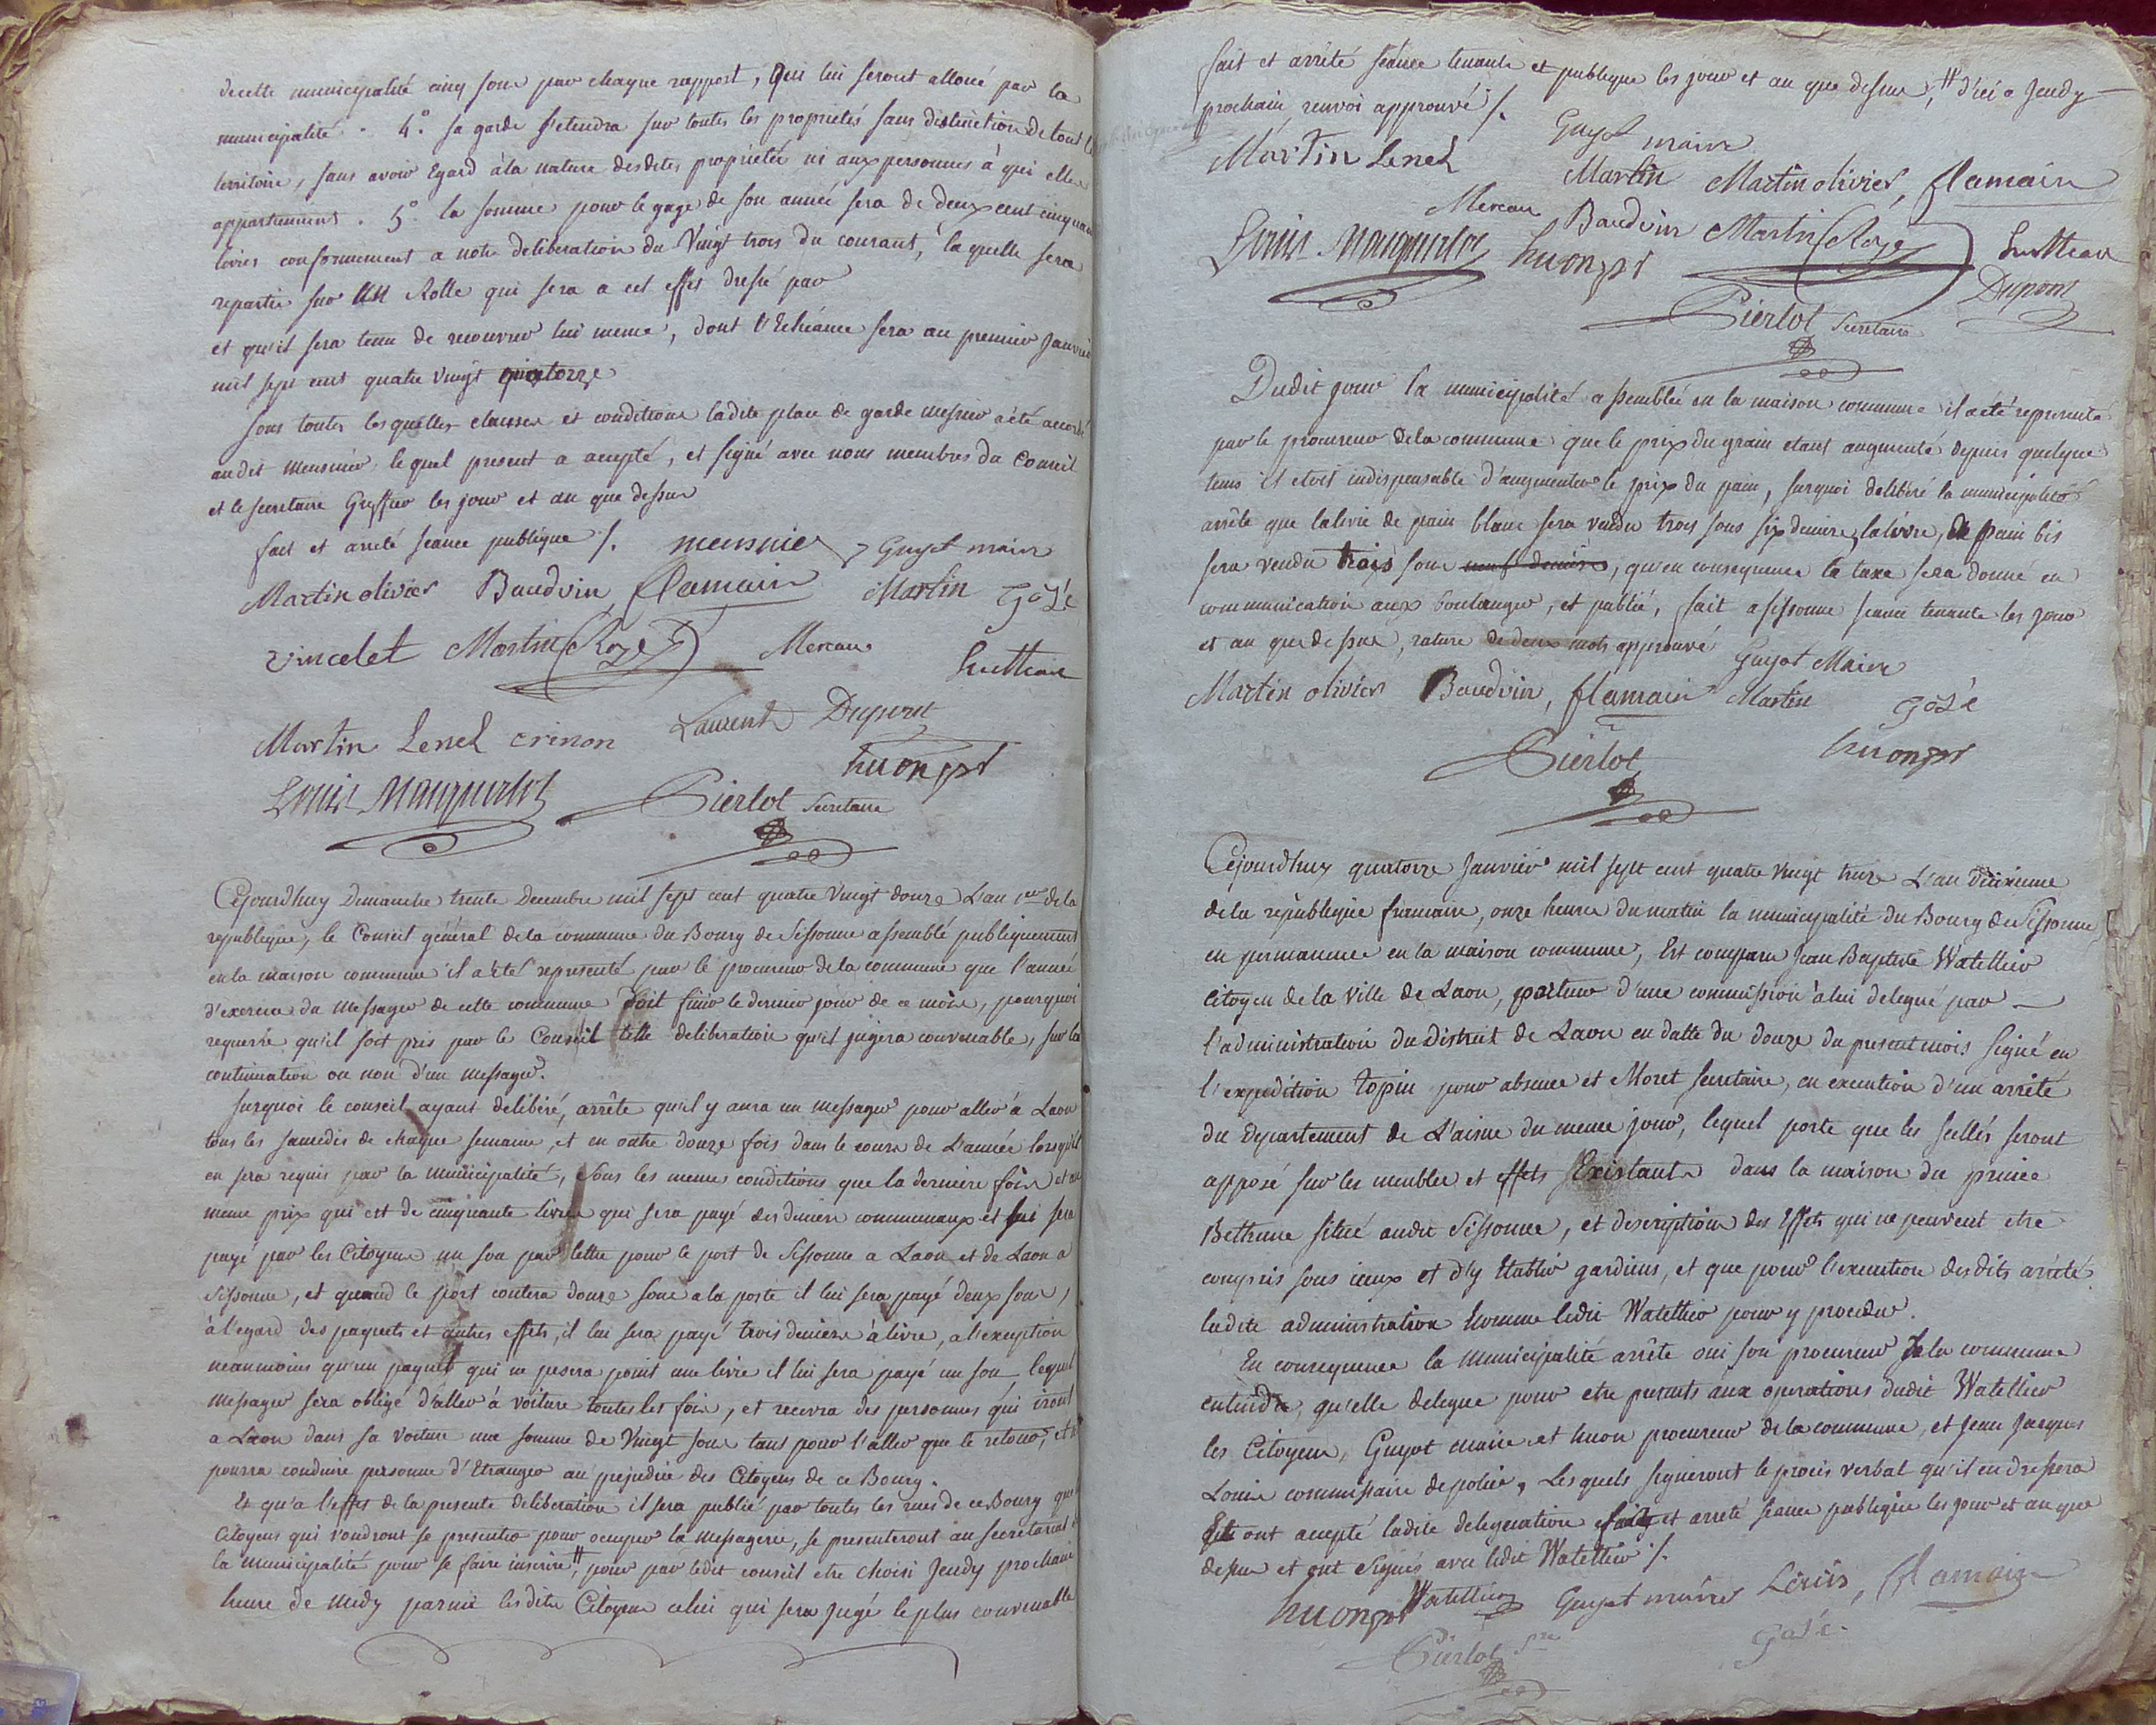 decette municipalité cinq sous par chaque rapport, qui lui seront alloué par la
municipalité. 4.° sa garde s'etendra sur toutes les proprietés sans distinction de tout le
territoire, sans avoir Egard à la nature desdites proprietés ni aux personnes à qui elles
appartiennent. 5.° la somme pour le gage de son année sera de deux cent cinquante
livres conformement a notre deliberation du Vingt trois du courant, la quelle sera
repartie sur un Rolle qui sera a cet effet dressé par
et qu'il sera tenu de recouvrer lui meme, dont l'Echéance sera au premier Janvier
mil sept cent quatre Vingt quatorze
Sous toutes lesquelles clauses et conditions ladite place de garde messier a été accordé
audit meusnier lequel present a accepté, et signé avec nous membres du Conseil
et le secretaire Greffier les jour et an que dessus
fait et arreté séance publique ./. meusnier Guyot maire
Martin olivier Baudvin flamain Martin Gozé
vincelet Martin Roze Mereau hutteau
Martin Lenel crinon Laurent Dupont
Louis Mauquerlot Pierlot Secretaire huon pr
Cejourdhuy Dimanche trente Decembre mil sept cent quatre Vingt douze L'an 1er de la
republique, le Conseil général de la commune du Bourg de Sissonne assemblé publiquement
en la maison commune il a été representé par le procureur de la commune que l'année
d'exercice du Messager de cette commune doit finir le dernier jour de ce mois, pourquoi
requerre qu'il soit pris par le Conseil telle deliberation qu'il jugera convenable, sur la
continuation ou non d'un messager.
Surquoi le conseil ayant deliberé, arrête qu'il y aura un messager pour aller à Laon
tous les samedis de chaque semaine, et en outre douze fois dans le cours de L'année lorsqu'il
en sera requis par la municipalité, sous les memes conditions que la derniere fois et au
meme prix qui est de cinquante livres qui sera payé des deniers communaux et lui sera
payé par les Citoyens un sou par lettre pour le port de Sissonne a Laon et de Laon a
Sissonne, et quand le port coutera douze sous a la poste il lui sera payé deux sous,
à l'egard des paquets et autres effets, il lui sera payé trois deniers à livre, a l'exception
neanmoins qu'un paquet qui ne pesera point une livre il lui sera payé un sou lequel
Messager sera obligé d'aller à voiture toutes les fois, et recevra des personnes qui iront
a Laon dans sa voiture une somme de Vingt sous tant pour l'aller que le retour, et ne
pourra conduire personne d'Etranger au prejudice des Citoyens de ce Bourg.
Et qu'a l'effet de la presente deliberation il sera publié par toutes les rues de ce Bourg que
Citoyens qui voudront se presenter pour occuper la Messagerie, se presenteront au secretariat de
la municipalité pour se faire inscrire #, pour par ledit conseil etre choisi Jeudy prochain
heure de Midy parmi lesdits Citoyens celui qui sera Jugé le plus convenable
fait et arrêté séance tenante et publique les jour et an que dessus, # d'ici a Jeudy
prochain, renvoi approuvé ./.
Martin Lenel Guyot maire
Martin Martin olivier, flamain
Mereau Baudvin Martin Roze hutteau
Louis Mauquerlot huon pr Dupont
Pierlot Secretaire
Dudit jour la municipalité assemblée en la maison commune il a eté representé
par le procureur de la commune que le prix du grain etant augmenté depuis quelque
tems il etoit indispensable d'augmenter le prix du pain, surquoi deliberé la municipalité
arrête que la livre de pain blanc sera vendu trois sous six deniers la livre, le pain bis
sera vendu trois sous neuf deniers, qu'en consequence la taxe sera donné en
communication aux boulanger, et publié, fait a sissonne seance tenante les jour
et an que dessus, rature de deux mots approuvé
Guyot Maire
Martin olivier Baudvin, flamain Martin Gozé
Pierlot huon pr
Cejourdhuy quatorze Janvier mil sept cent quatre Vingt treize L'an deuxieme
de la république francaise, onze heures du matin la municipalité du Bourg de Sissonne
en permanence en la maison commune, Est comparu Jean Baptiste Watellier
Citoyen de la Ville de Laon, porteur d'une commission à lui delegué par
l'administration du District de Laon en datte du douze du present mois signé en
l'expedition Topin pour absence et Moret secretaire, en execution d'un arrêté
du Departement de L'aisne du meme jour, lequel porte que les scellés seront
apposé sur les meubles et effets Existants dans la maison du prince
Bethune situé audit Sissonne, et description des Effets qui ne peuvent etre
compris sous iceux et d'y Etablir gardiens, et que pour l'execution desdits arrêté
ladite administration Nomme ledit Watellier pour y proceder.
En consequence la municipalité arrête oui son procureur de la commune
entendu, qu'elle delegue pour etre presents aux operations dudit Watellier
les Citoyens, Guyot maire et huon procureur de la commune, et Jean Jacques
Louis commissaire de police, Lesquels signeront le procès verbal qu'il en dressera
Et ont accepté ladite delegation fait et arreté séance publique les jour et an que
dessus et ont signés avec ledit Watellier ./.
huon pr Watellier Guyot maire Louis, flamain
Pierlot Sre Gozé